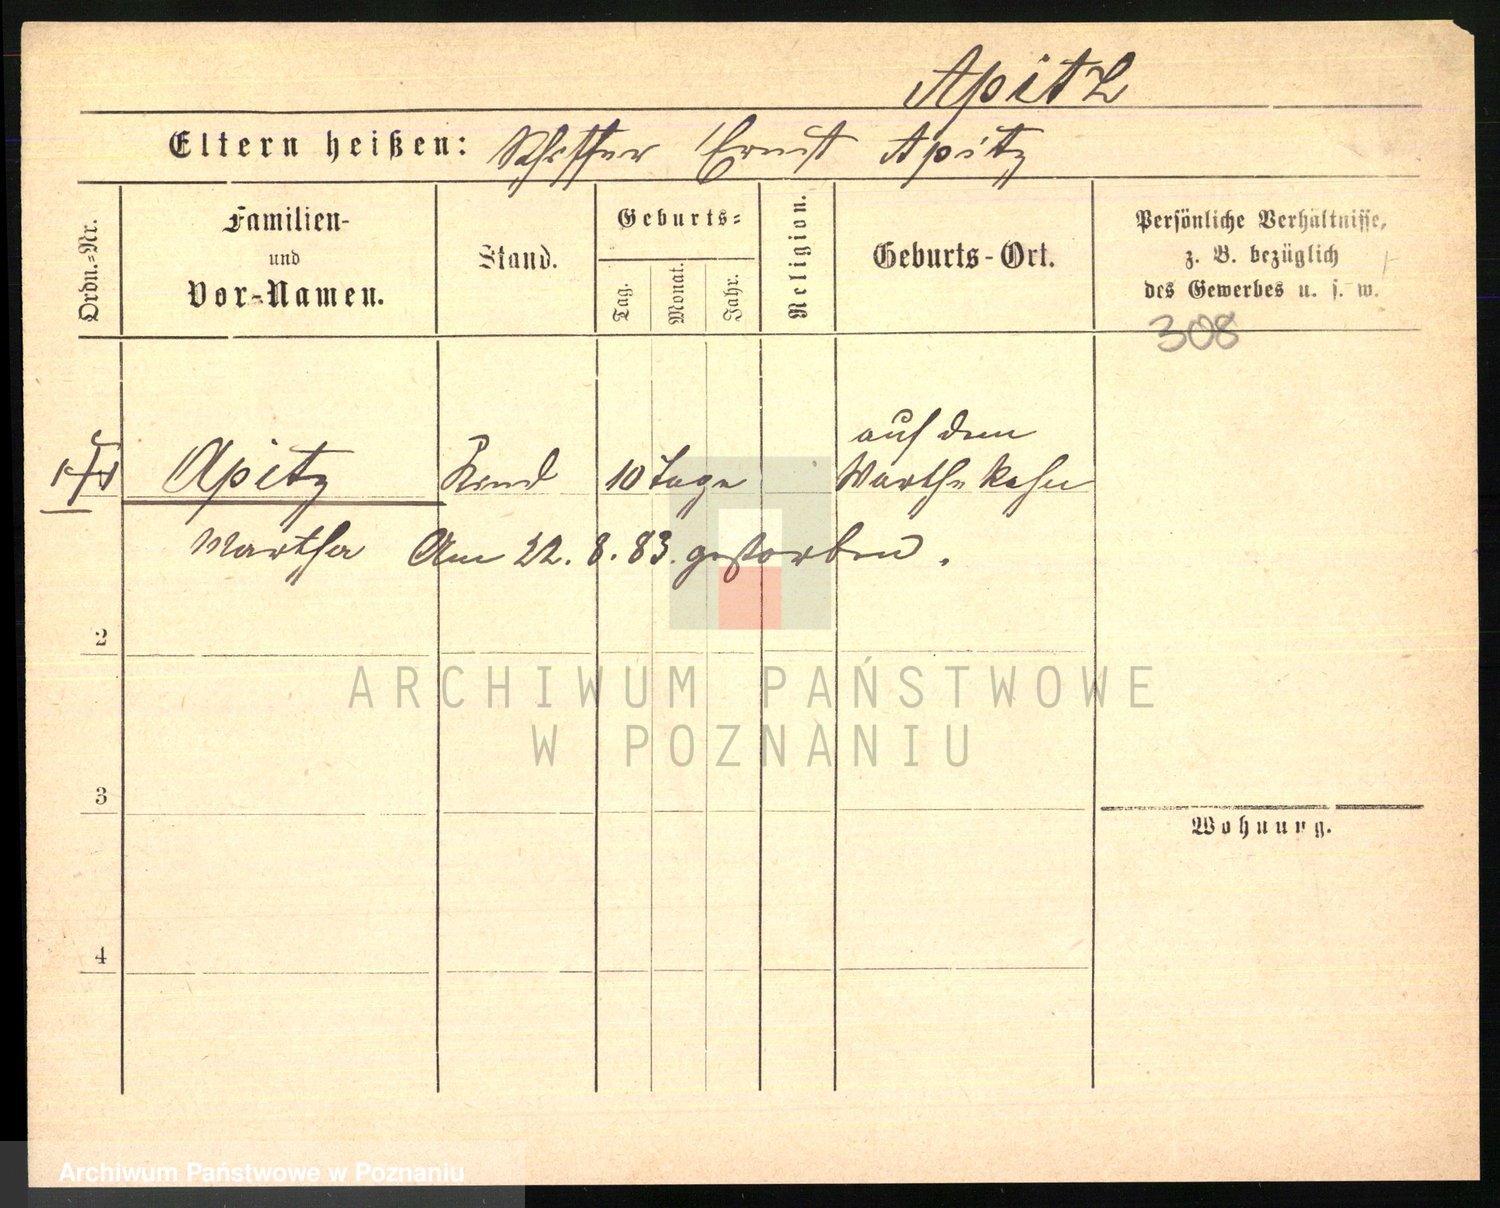 Apitz
Eltern heißen: Schiffer Ernst Apitz
Ordn.-Nr.
Familien-
und
Vor-Namen.
Stand.
Geburts-
Tag.
Monat.
Jahr.
Religion.
Geburts-Ort.
Persönliche Verhältnisse,
z. B. bezüglich
des Gewerbes u. s. w.
308
auf dem
1 Apitz Kind 10 Tage Warthe Kahn
Martha Am 22. 8. 83. gestorben.
2
ARCHIWUM PAŃSTWOWE
W POZNANIU
3
Wohnung.
4
Archiwum Państwowe w Poznaniu